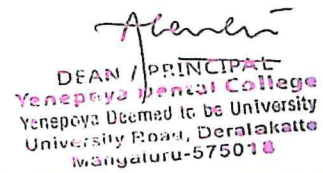 DEAN / PRINCIPAL
Yenepoya Dental College
Yenepoya Deemed to be University
University Road, Deralakatte
Mangaluru-575018